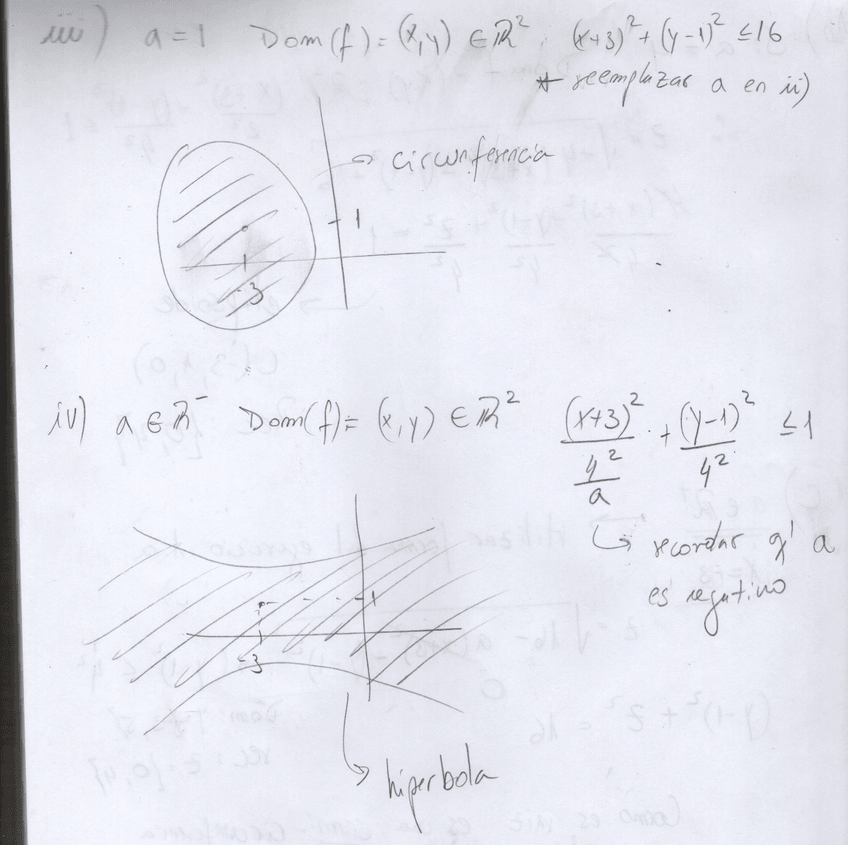 iii) a = 1 Dom (f) = (x, y) ∈ ℝ² : (x+3)² + (y-1)² ≤ 16
* reemplazar a en ii)
→ circunferencia
1
-3
iv) a ∈ ℝ⁻ Dom(f) = (x, y) ∈ ℝ² (x+3)²/(4²/a) + (y-1)²/4² ≤ 1
↳ recordar q' a
es negativo
1
-3
↳ hiperbola